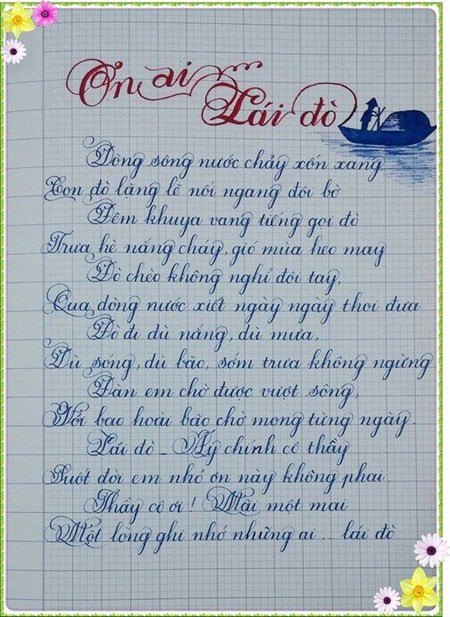 Ơn ai Lái đò
Dòng sông nước chảy xốn xang
Con đò lặng lẽ nối ngang đôi bờ
Đêm khuya vang tiếng gọi đò
Trưa hè nắng cháy, gió mùa heo may
Đò chèo không nghỉ đôi tay,
Qua dòng nước xiết ngày ngày thoi đưa
Đò đi dù nắng, dù mưa,
Dù sóng, dù bão, sớm trưa không ngừng
Đàn em chờ được vượt sông,
Với bao hoài bão chờ mong từng ngày.
Lái đò - Ấy chính cô thầy
Suốt đời em nhớ ơn này không phai
Thầy cô ơi! Mãi một mai
Một lòng ghi nhớ những ai... lái đò